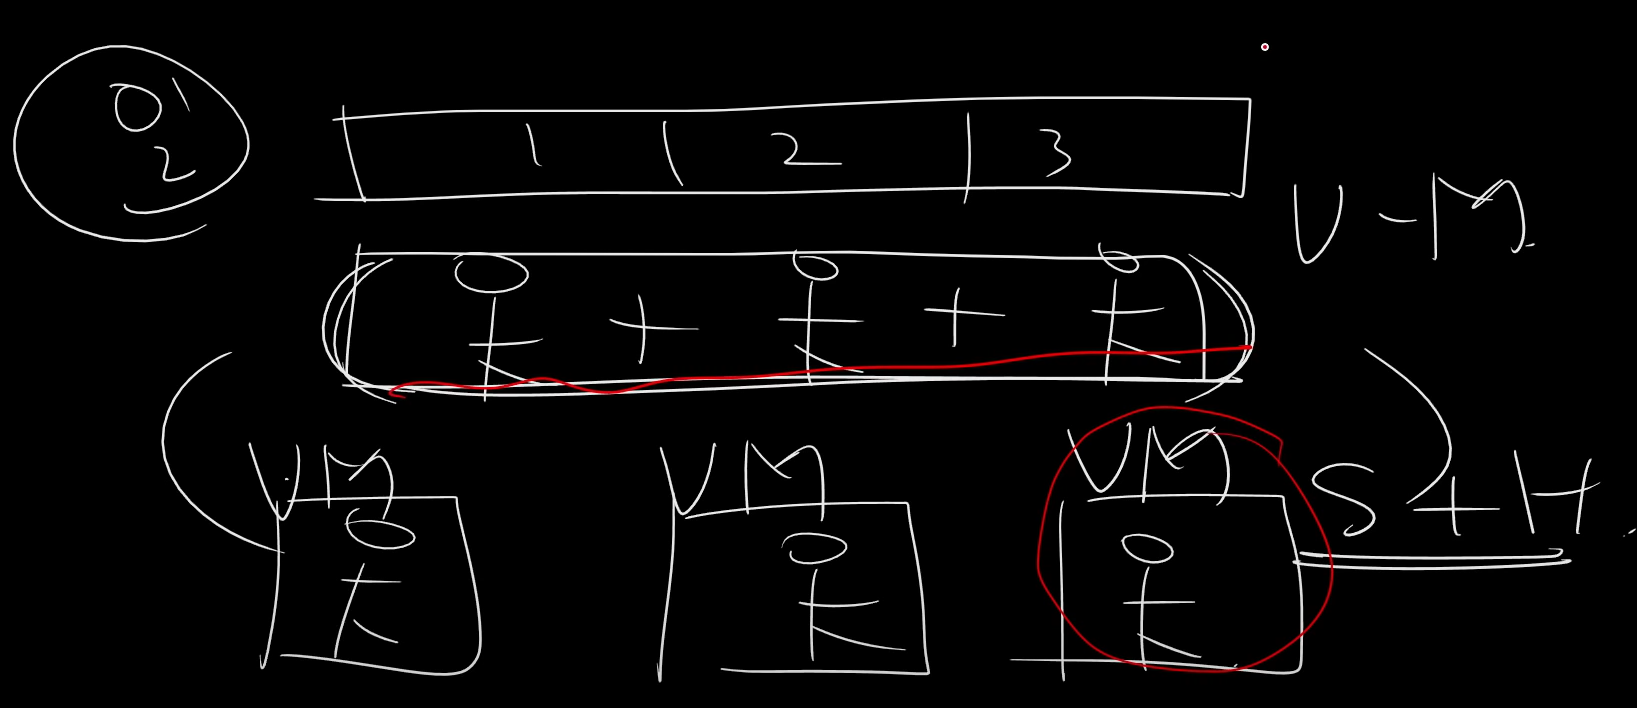 0'
2
1 | 2 | 3
V-M
+ +
VM VM VM
S+H